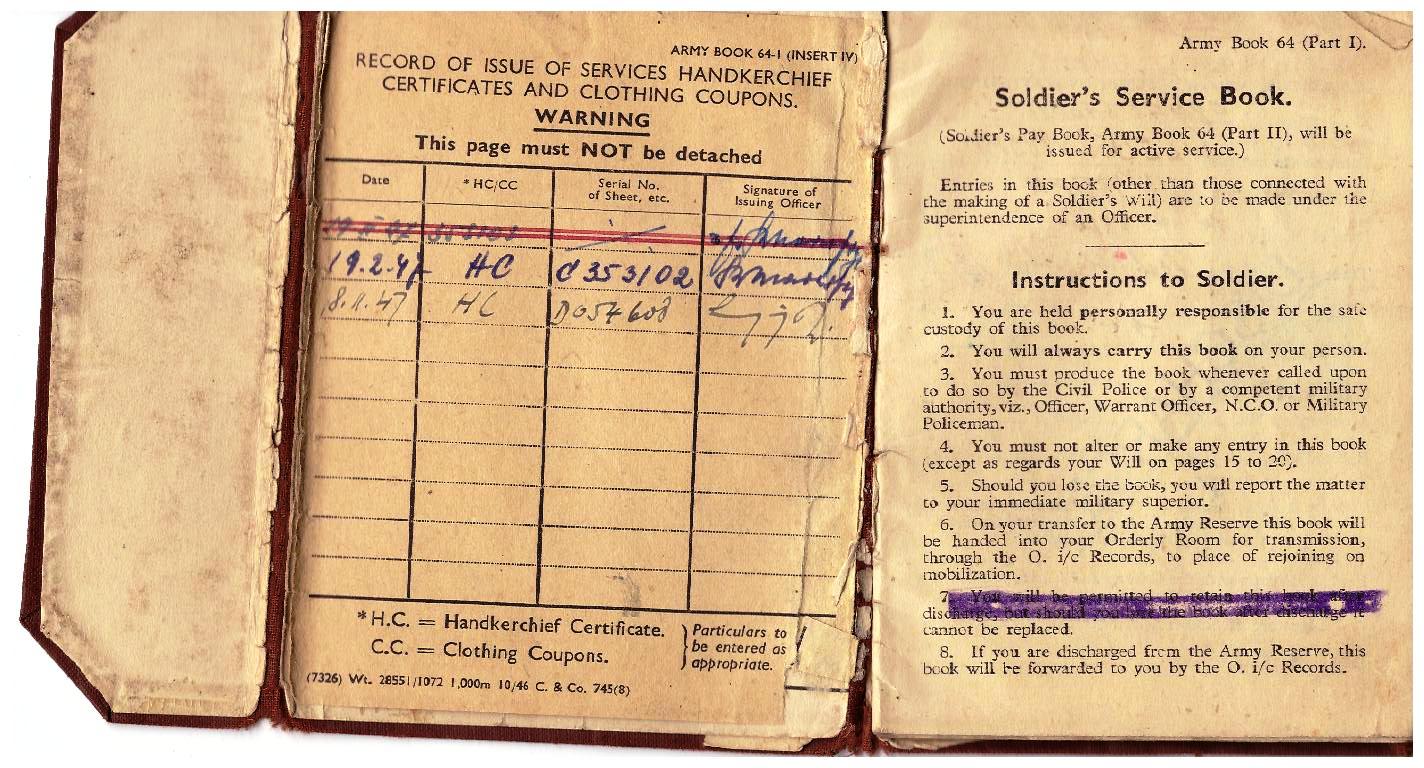 ARMY BOOK 64-1 (INSERT IV)
RECORD OF ISSUE OF SERVICES HANDKERCHIEF
CERTIFICATES AND CLOTHING COUPONS.
WARNING
This page must NOT be detached
Date *HC/CC Serial No. of Sheet, etc. Signature of Issuing Officer
19.2.47 HC d 353102
8.11.47 HC D054608
*H.C. = Handkerchief Certificate.
C.C. = Clothing Coupons.
Particulars to
be entered as
appropriate.
(7326) Wt. 28551/1072 1,000m 10/46 C. & Co. 745(8)
Army Book 64 (Part I).
Soldier's Service Book.
(Soldier's Pay Book, Army Book 64 (Part II), will be
issued for active service.)
Entries in this book (other than those connected with
the making of a Soldier's Will) are to be made under the
superintendence of an Officer.
Instructions to Soldier.
1. You are held personally responsible for the safe
custody of this book.
2. You will always carry this book on your person.
3. You must produce the book whenever called upon
to do so by the Civil Police or by a competent military
authority, viz., Officer, Warrant Officer, N.C.O. or Military
Policeman.
4. You must not alter or make any entry in this book
(except as regards your Will on pages 15 to 20).
5. Should you lose the book, you will report the matter
to your immediate military superior.
6. On your transfer to the Army Reserve this book will
be handed into your Orderly Room for transmission,
through the O. i/c Records, to place of rejoining on
mobilization.
7. You will be permitted to retain this book after
discharge, but should you lose the book after discharge it
cannot be replaced.
8. If you are discharged from the Army Reserve, this
book will be forwarded to you by the O. i/c Records.